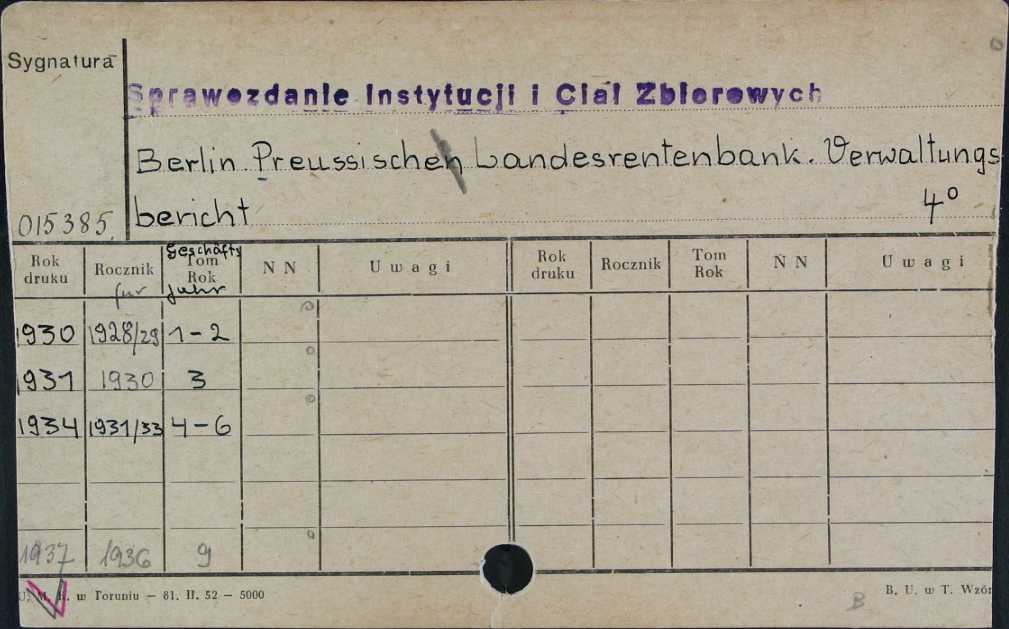 Sygnatura
Sprawozdanie Instytucji i Ciał Zbiorowych
Berlin. Preussischen Landesrentenbank. Verwaltungs
015385. bericht 4°
Rok druku Rocznik für Geschäfts Tom Rok jahr N N Uwagi Rok druku Rocznik Tom Rok N N Uwagi
1930 1928/29 1-2
1931 1930 3
1934 1931/33 4-6
1937 1936 9
U. M. K. w Toruniu — 81. II. 52 — 5000 B. U. w T. Wzór
B